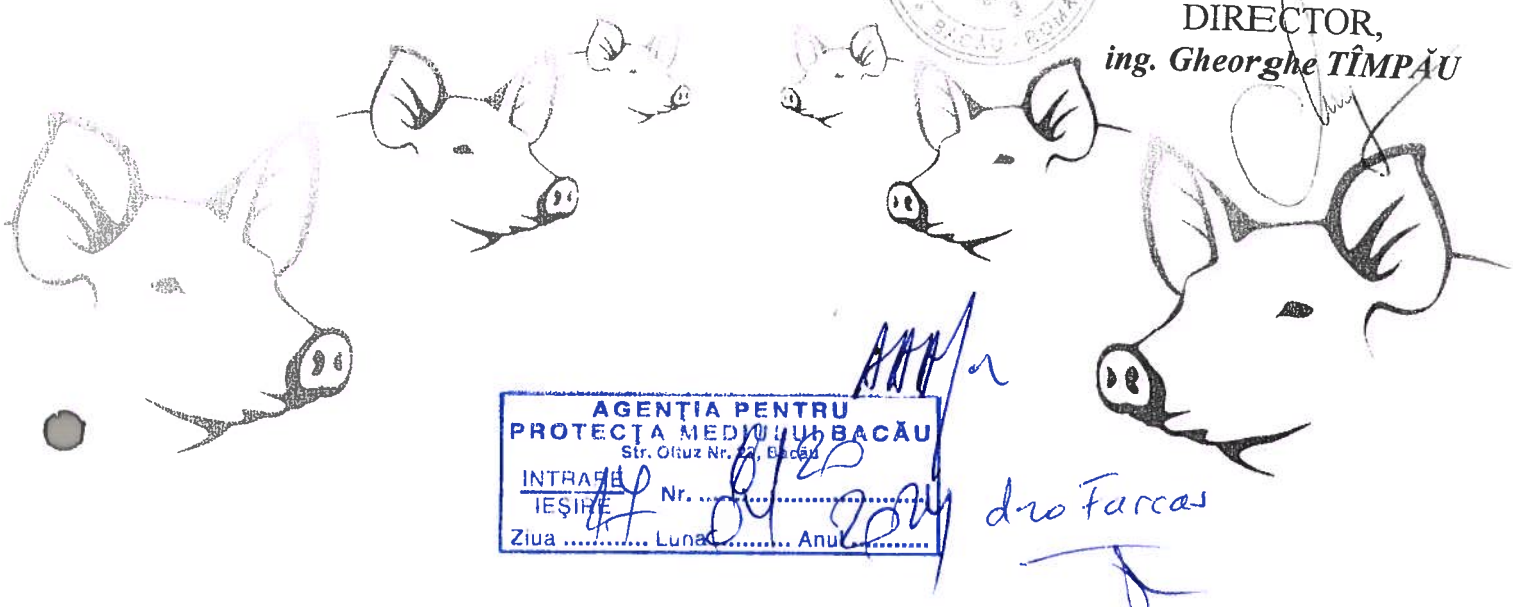 BACĂU - ROMÂ
DIRECTOR,
ing. Gheorghe TÎMPĂU
AGENȚIA PENTRU
PROTECȚIA MEDIULUI BACĂU
Str. Oituz Nr. 23, Bacău
INTRARE
IEȘIRE
Nr. ........ 6120
Ziua 17 Luna 04 Anul 2024
Farcas